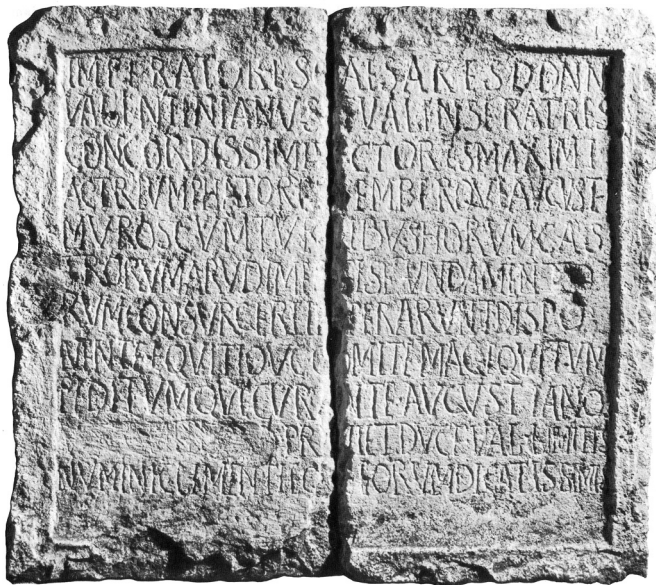 IMPERATORES CAESARES DD NN
VALENTINIANVS VALENS FRATRES
CONCORDISSIMI VICTORES MAXIMI
AC TRIVMPHATORES SEMPERQVE AVGVSTI
MVROS CVM TVRRIBVS HORVM CAS
TRORVM A RVDIMENTIS FVNDAMENTO
RVM CONSVRGERE IMPERARVNT DISPO
NENTE EQVITIO V C COMITE MAG EQVITVM
PEDITVMQVE CVRANTE AVGVSTIANO
ET DVCE VAL LIMITIS
NVMINI CLEMENTIEQ EORVM DICATISSIMO